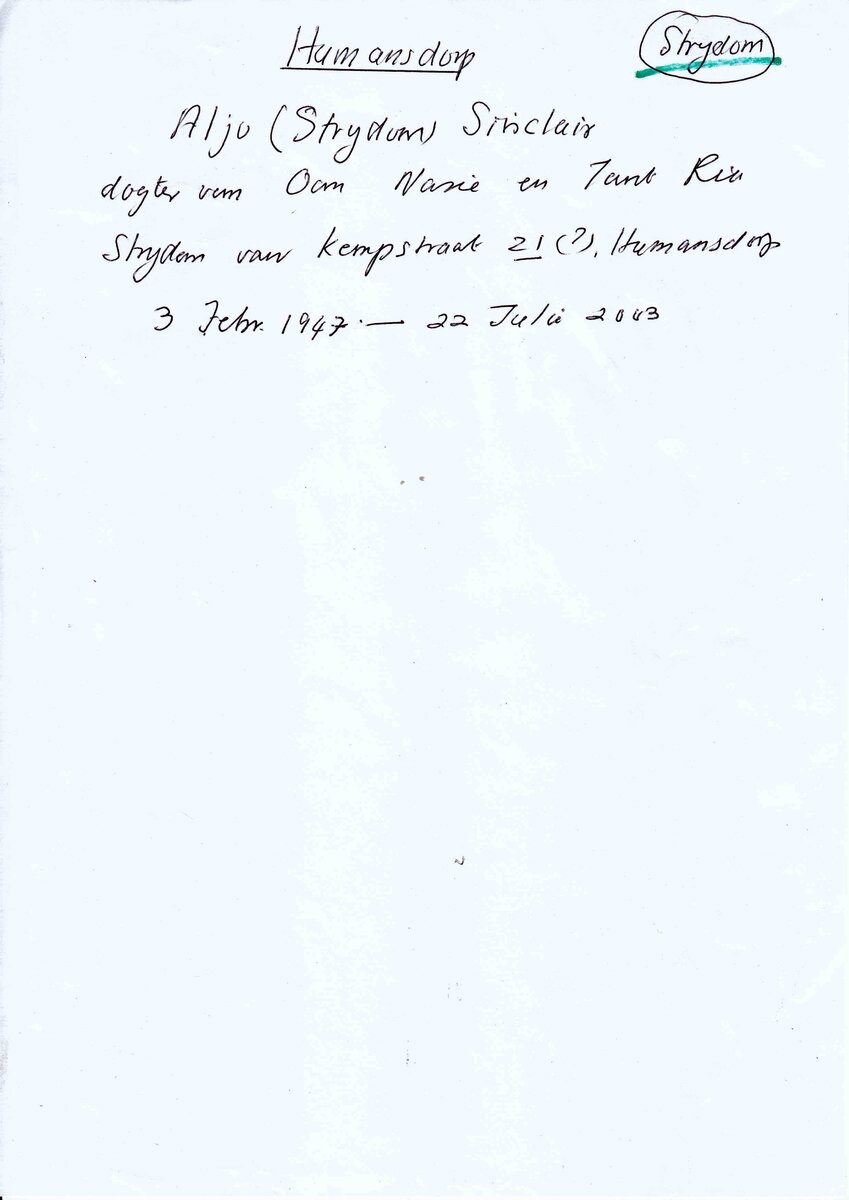 Humansdorp
Strydom
Aljo (Strydom) Sinclair
dogter van Oom Nasie en Tant Ria
Strydom van Kempstraat 21 (?), Humansdorp
3 Febr. 1947 — 22 Julie 2003